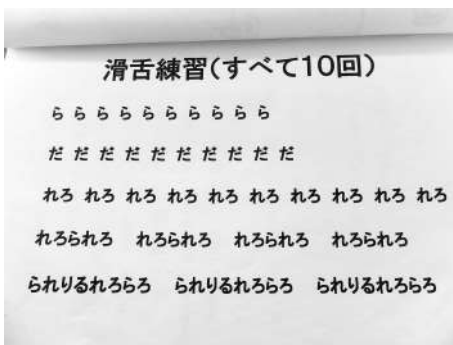 滑舌練習(すべて10回)
ら ら ら ら ら ら ら ら ら ら
だ だ だ だ だ だ だ だ だ だ
れろ れろ れろ れろ れろ れろ れろ れろ れろ れろ
れろられろ れろられろ れろられろ れろられろ
られりるれろらろ られりるれろらろ られりるれろらろ